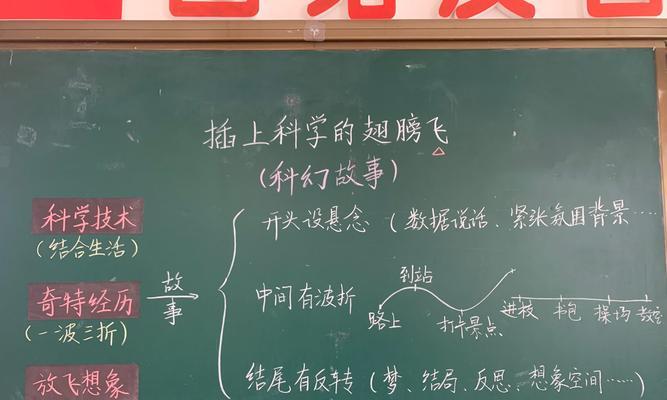 插上科学的翅膀飞
(科幻故事)
科学技术
(结合生活)
奇特经历
(一波三折)
放飞想象
故事
开头设悬念 (数据说话、紧张氛围背景……
中间有波折
路上
到站
打卡景点
进校
书包
操场
教室
结尾有反转 (梦、结局、反思、想象空间……)